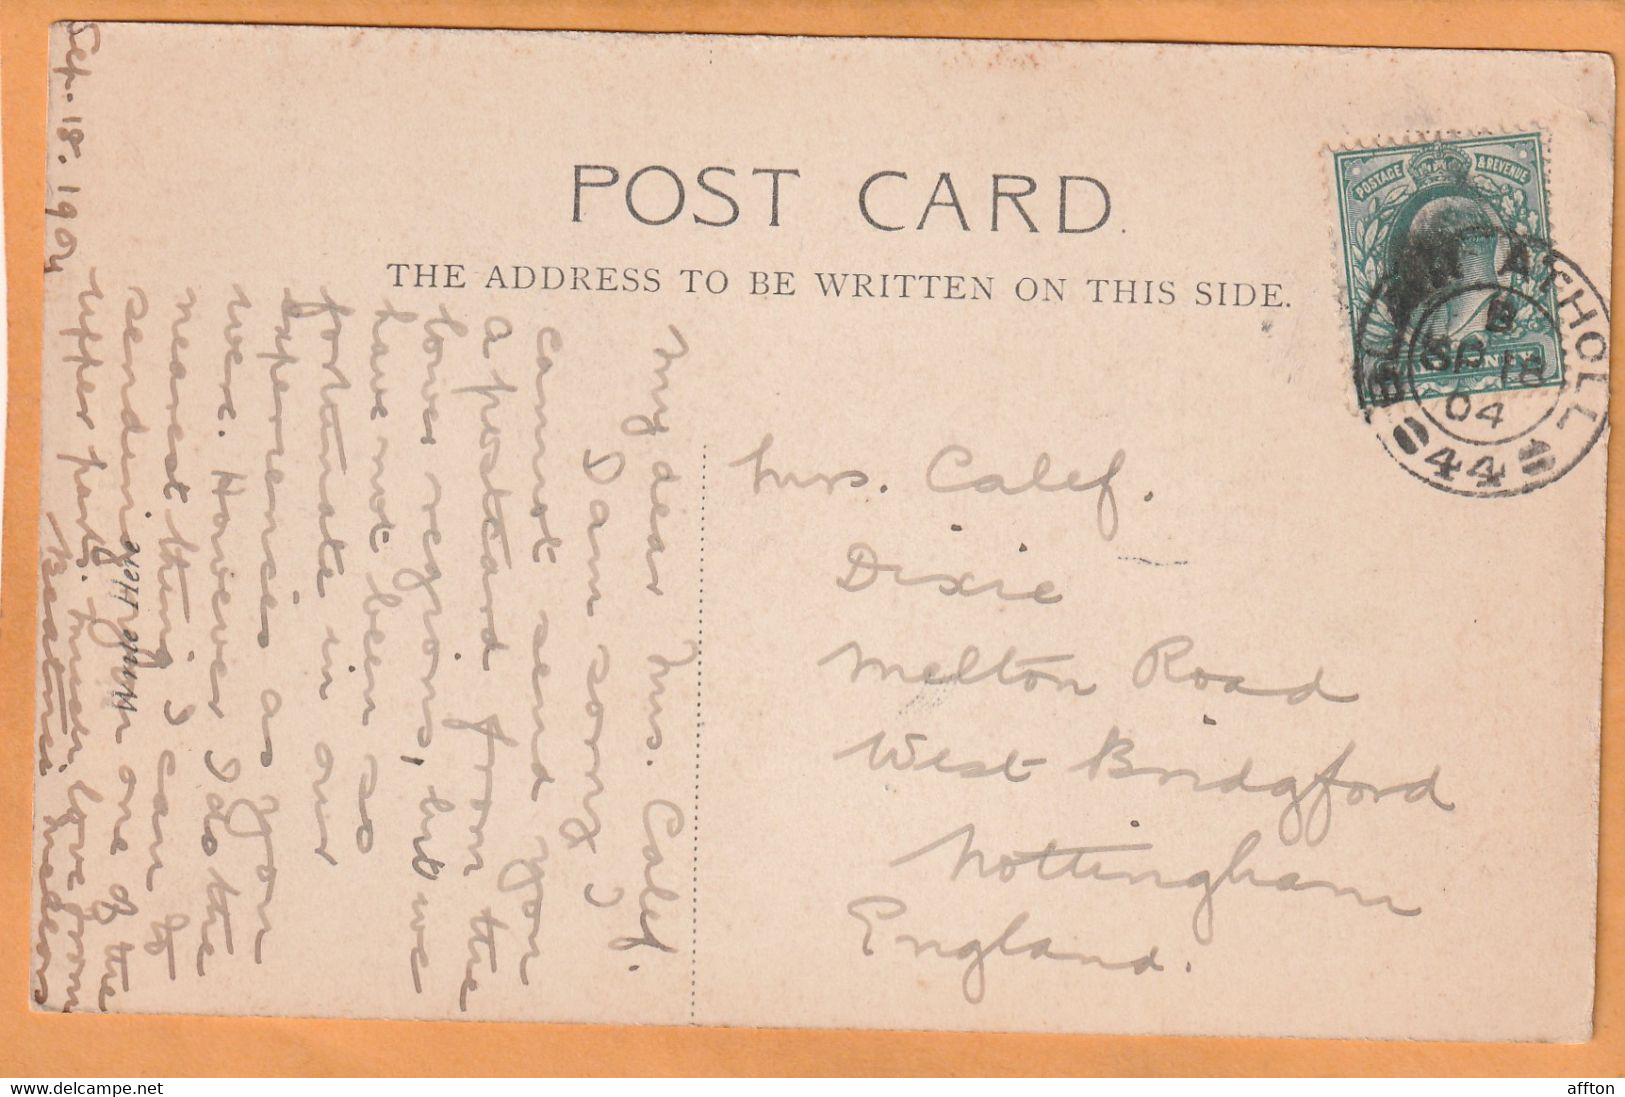 POST CARD.
THE ADDRESS TO BE WRITTEN ON THIS SIDE.
POSTAGE & REVENUE
BLAIR ATHOLL
B
SP 18
04
844
Mrs. Calef.
Dixie
Melton Road
West Bridgford
Nottingham
England.
Sep. 18. 1904
My dear Mrs. Calef.
I am sorry I
cannot send you
a postcard from the
lower regions, but we
have not been so
fortunate in our
experiences as you
were. However I do the
nearest thing I can to
sending you one of the
upper parts. Much love from
Beatrice
affton